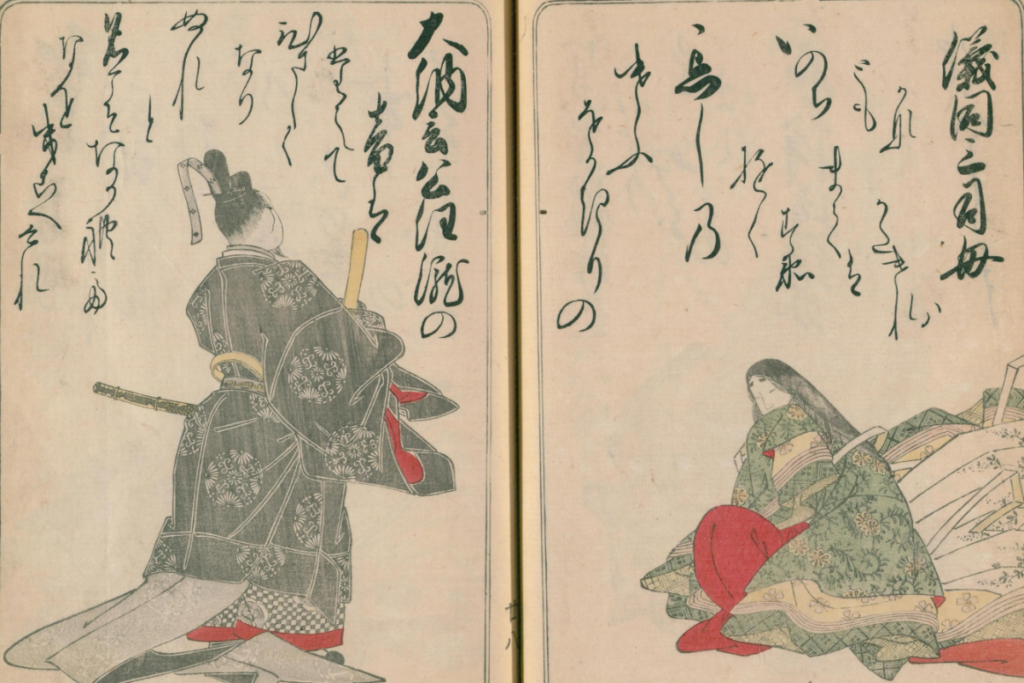 儀同三司母
忘しの
ゆく
すゑ
まては
かたけれは
けふ
をかきりの
いのち
とも
かな
大納言公任
瀧の
音は
たえて
ひさしく
なり
ぬれ
と
名こそなかれて
なを
聞えけれ